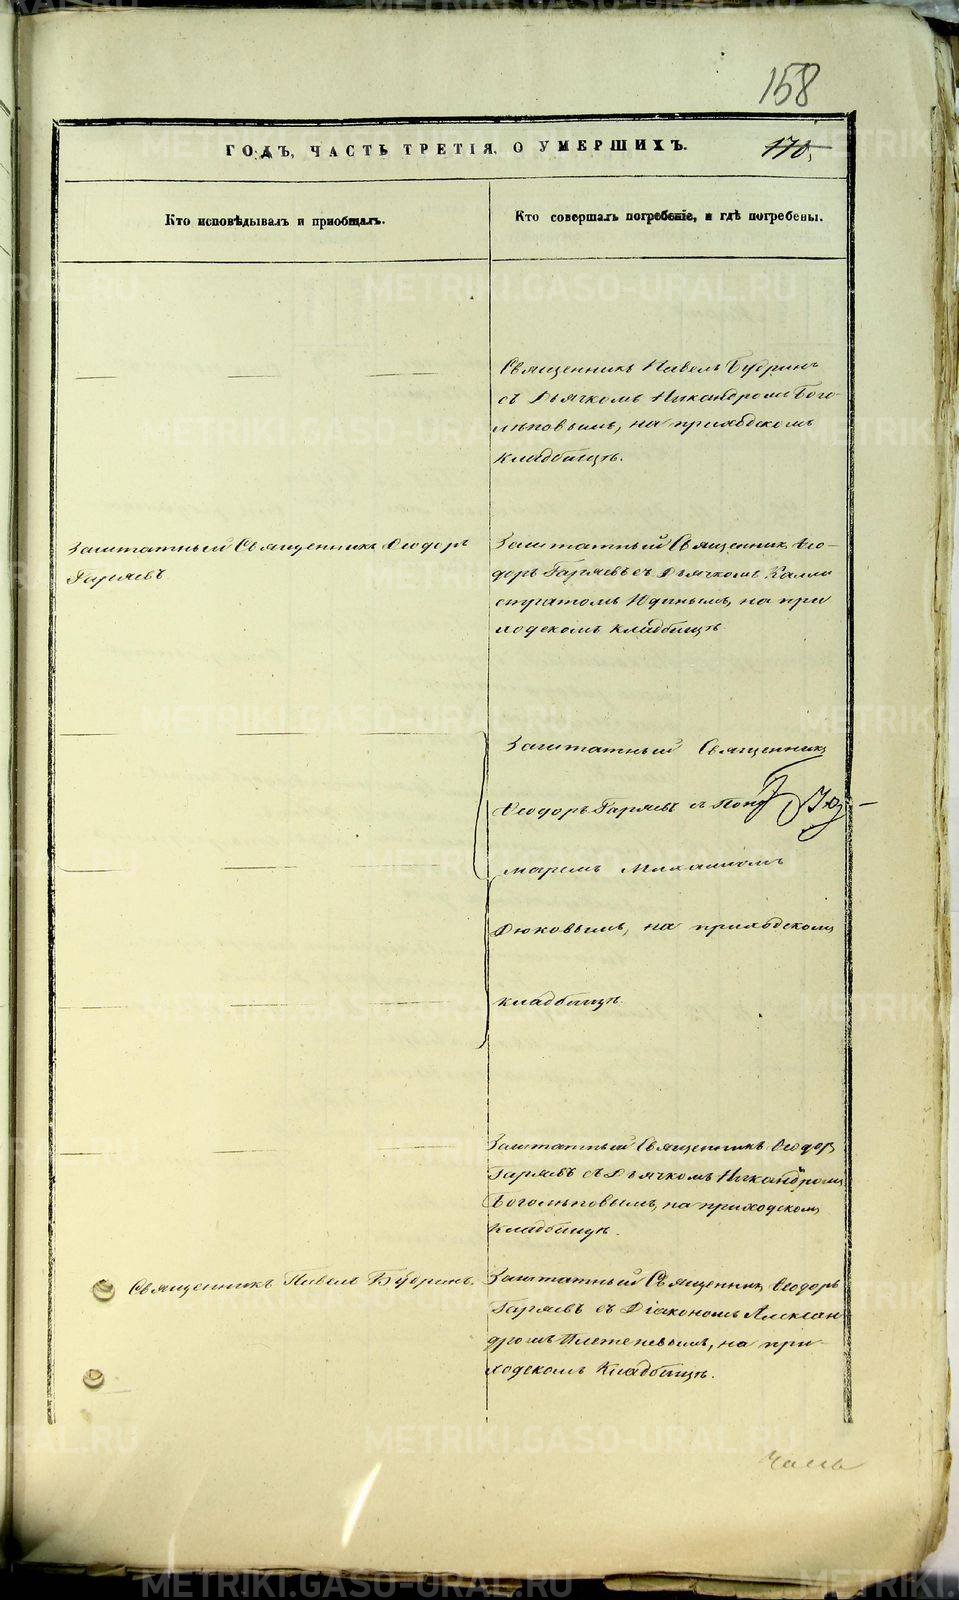 158
ГОДЪ, ЧАСТЬ ТРЕТІЯ, О УМЕРШИХЪ.
170,
Кто исповѣдывалъ и приобщалъ.
Кто совершалъ погребеніе, и гдѣ погребены.
Священникъ Павелъ Бубринъ
съ Дьячкомъ Никандромъ Бого-
лѣповымъ, на приходскомъ
кладбищѣ.
Заштатный Священникъ Ѳеодоръ
Гаряевъ
Заштатный Священникъ Ѳео-
доръ Гаряевъ съ Дьячкомъ Калли
стратомъ Юдинымъ, на при
ходскомъ кладбищѣ
Заштатный Священникъ
Ѳеодоръ Гаряевъ съ Поно
маремъ Михаиломъ
Дюковымъ, на приходскомъ
кладбищѣ.
Заштатный Священникъ Ѳеодоръ
Гаряевъ съ Дьячкомъ Никандромъ
Боголѣповымъ, на приходскомъ
Кладбищѣ.
Священникъ Павелъ Бубринъ.
Заштатный Священникъ Ѳеодоръ
Гаряевъ съ Діакономъ Алексан
дромъ Плетеневымъ, на при-
ходскомъ Кладбищѣ.
Часть
METRIKI.GASO-URAL.RU